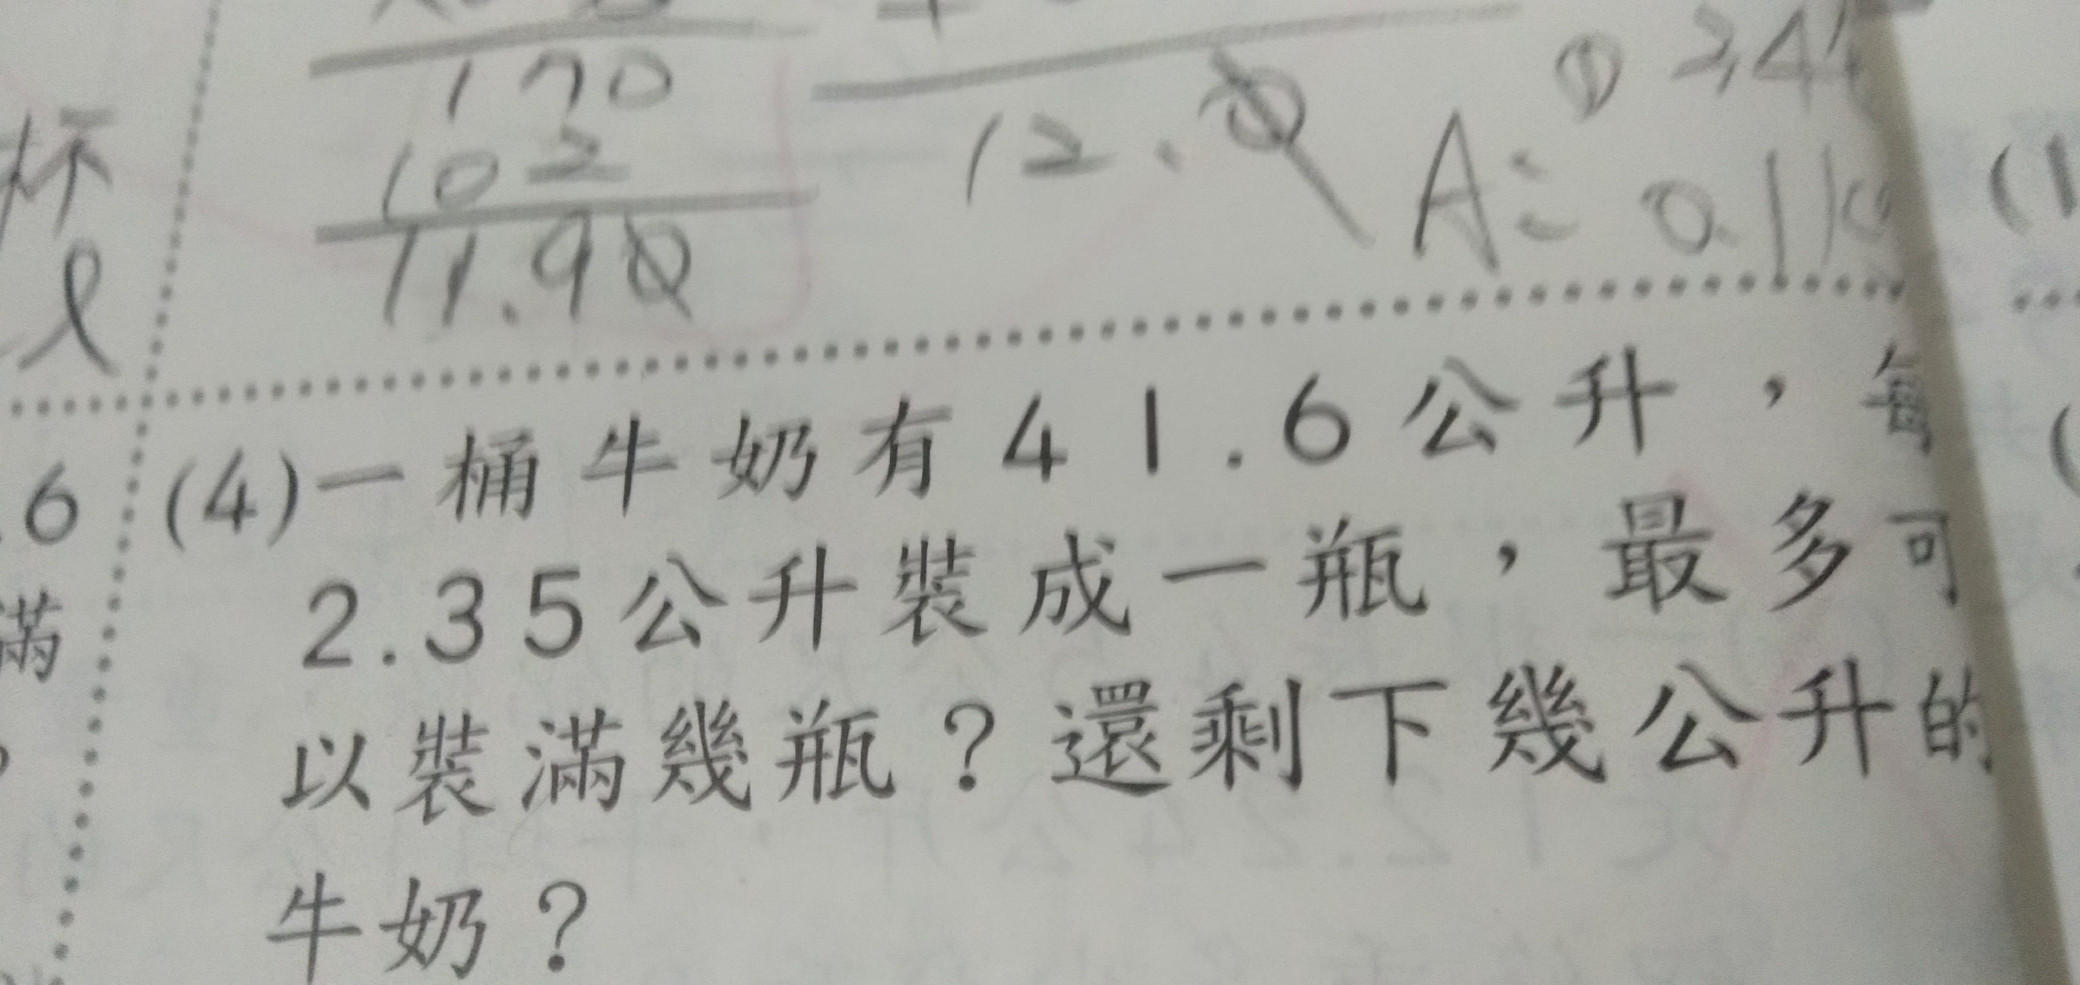 170
102
11.90
12.0
A:
杯
ℓ
(1
6
滿
(4)一桶牛奶有41.6公升，每
2.35公升裝成一瓶，最多可
以裝滿幾瓶？還剩下幾公升的
牛奶？